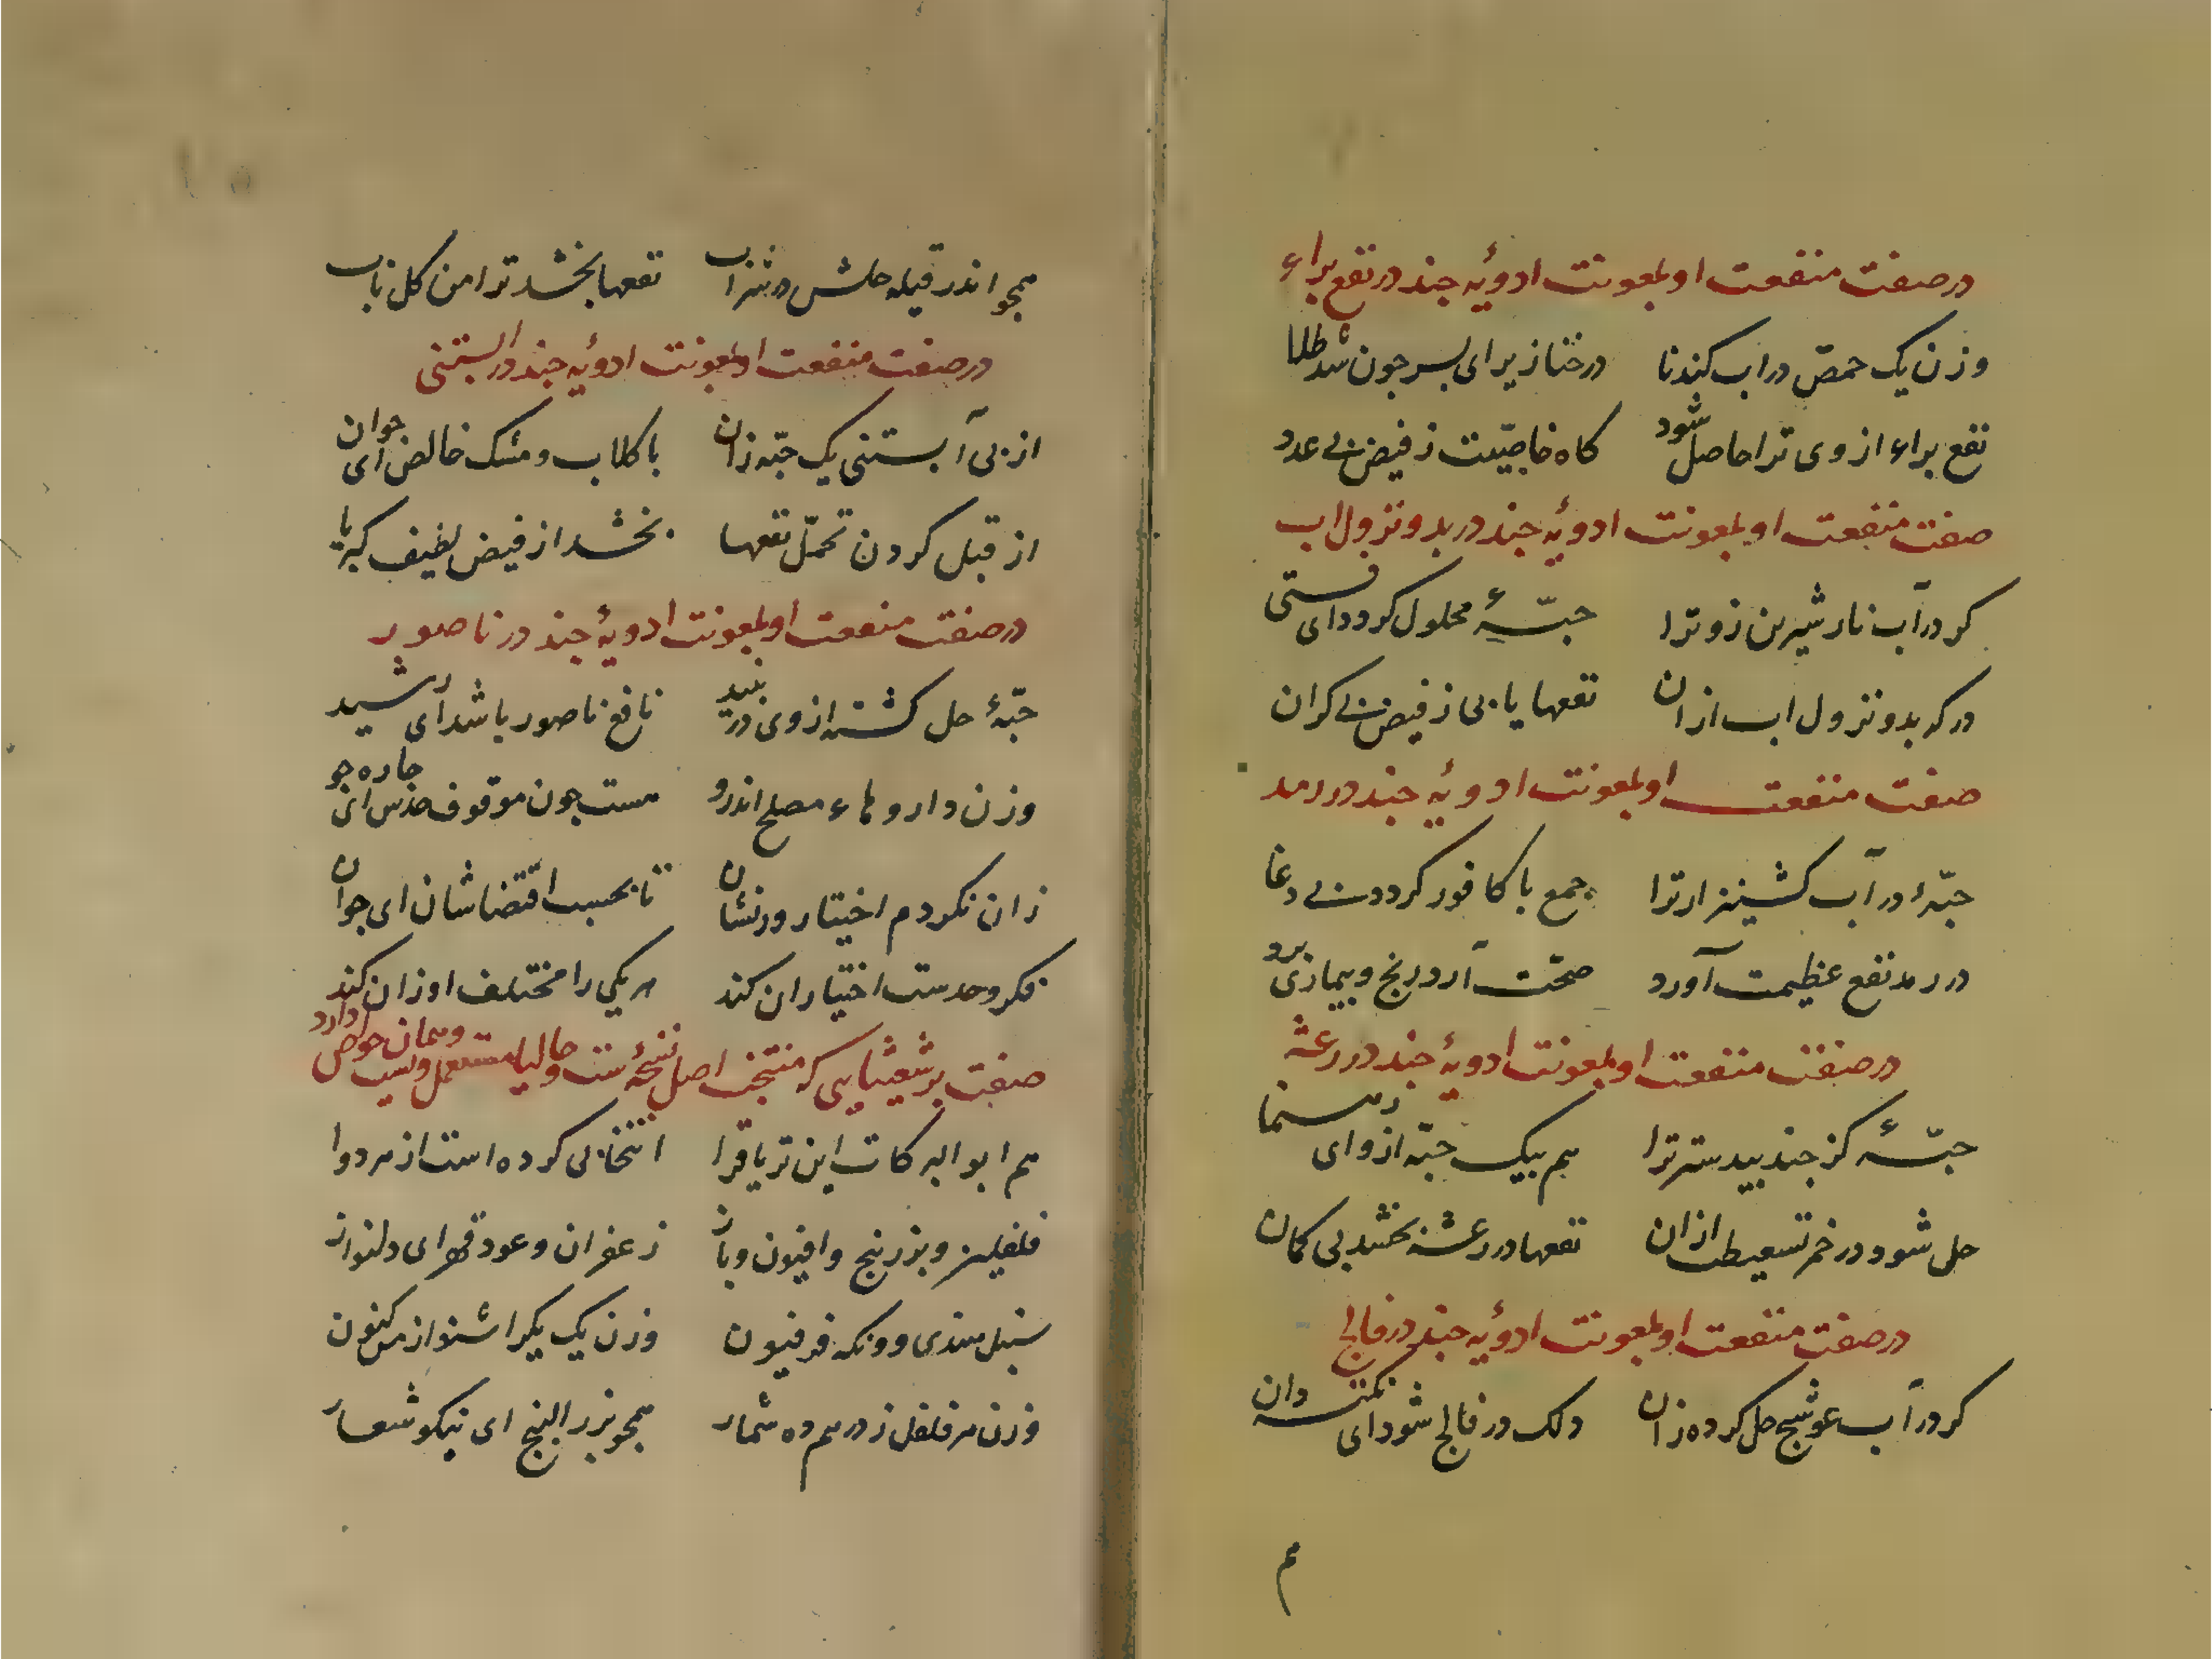 در صفت منفعت او بمعونت ادویهٔ چند در نفع براء
وزن یک حمّص در اب کندنا درخنازیر ای پسر چون شد طلا
نفع براء از وی ترا حاصل شود کاه خاصیّت ز فیض بی عدد
صفت منفعت او بمعونت ادویهٔ چند در بدو نزول اب
کر در آب نار شیرین زو ترا حبّهٔ محلول کردد ای فتی
در که بدو نزول اب ازان نفعها یابی ز فیض بی کران
صفت منفعت او بمعونت ادویهٔ چند در رمد
حبّهٔ در آب کشنیز ار ترا جمع با کافور کردد بی دغا
در رمد نفع عظیمت آورد صحّت آرد رنج و بیماری برد
در صفت منفعت او بمعونت ادویهٔ چند در رعشه
حبّهٔ کز جندبیدستر ترا هم بیک حبّه ازو ای
حل شود در خمر تسعیط ازان نفعها در رعشه بخشد بی کمان
در صفت منفعت او بمعونت ادویهٔ چند در فالج
کر در آب عوسج حل کرده زان دلک در فالج شود ای نکته دان
هم
همچو اندر قیله حلش در شراب نفعها بخشد ترا من کل باب
در صفت منفعت او بمعونت ادویهٔ چند در آبستنی
از پی آبستنی یک حبّه زان با کلاب و مشک خالص ای جوان
از قبل کردن تحمّل نفعها بخشد از فیض لطیف کبریا
در صفت منفعت او بمعونت ادویهٔ چند در ناصور
حبّهٔ حل کشته از وی در نبید نافع ناصور باشد ای رشید
وزن داروهاء مصلح اندرو هست چون موقوف حدس ای چاره جو
زان نکردم اختیار وزنشان تا بحسب اقتضاشان ای جوان
فکر و حدست اختیار ان کند هر یکی را مختلف اوزان کند
صفت برشعثایی که منتخب اصل نسخه است و حالیا مستعمل و بسیا و همان خواص دارد
هم ابو البرکات این تریاق را انتخابی کرده است از هر دوا
فلفلین و بزر بنج و افیون و باز زعفران و عود قهر ای دلنواز
سنبل هندی و ونکه فرفیون وزن یک یک را شنو از من کنون
وزن هر فلفل ز درهم ده شمار همچو بزر البنج ای نیکو شعار